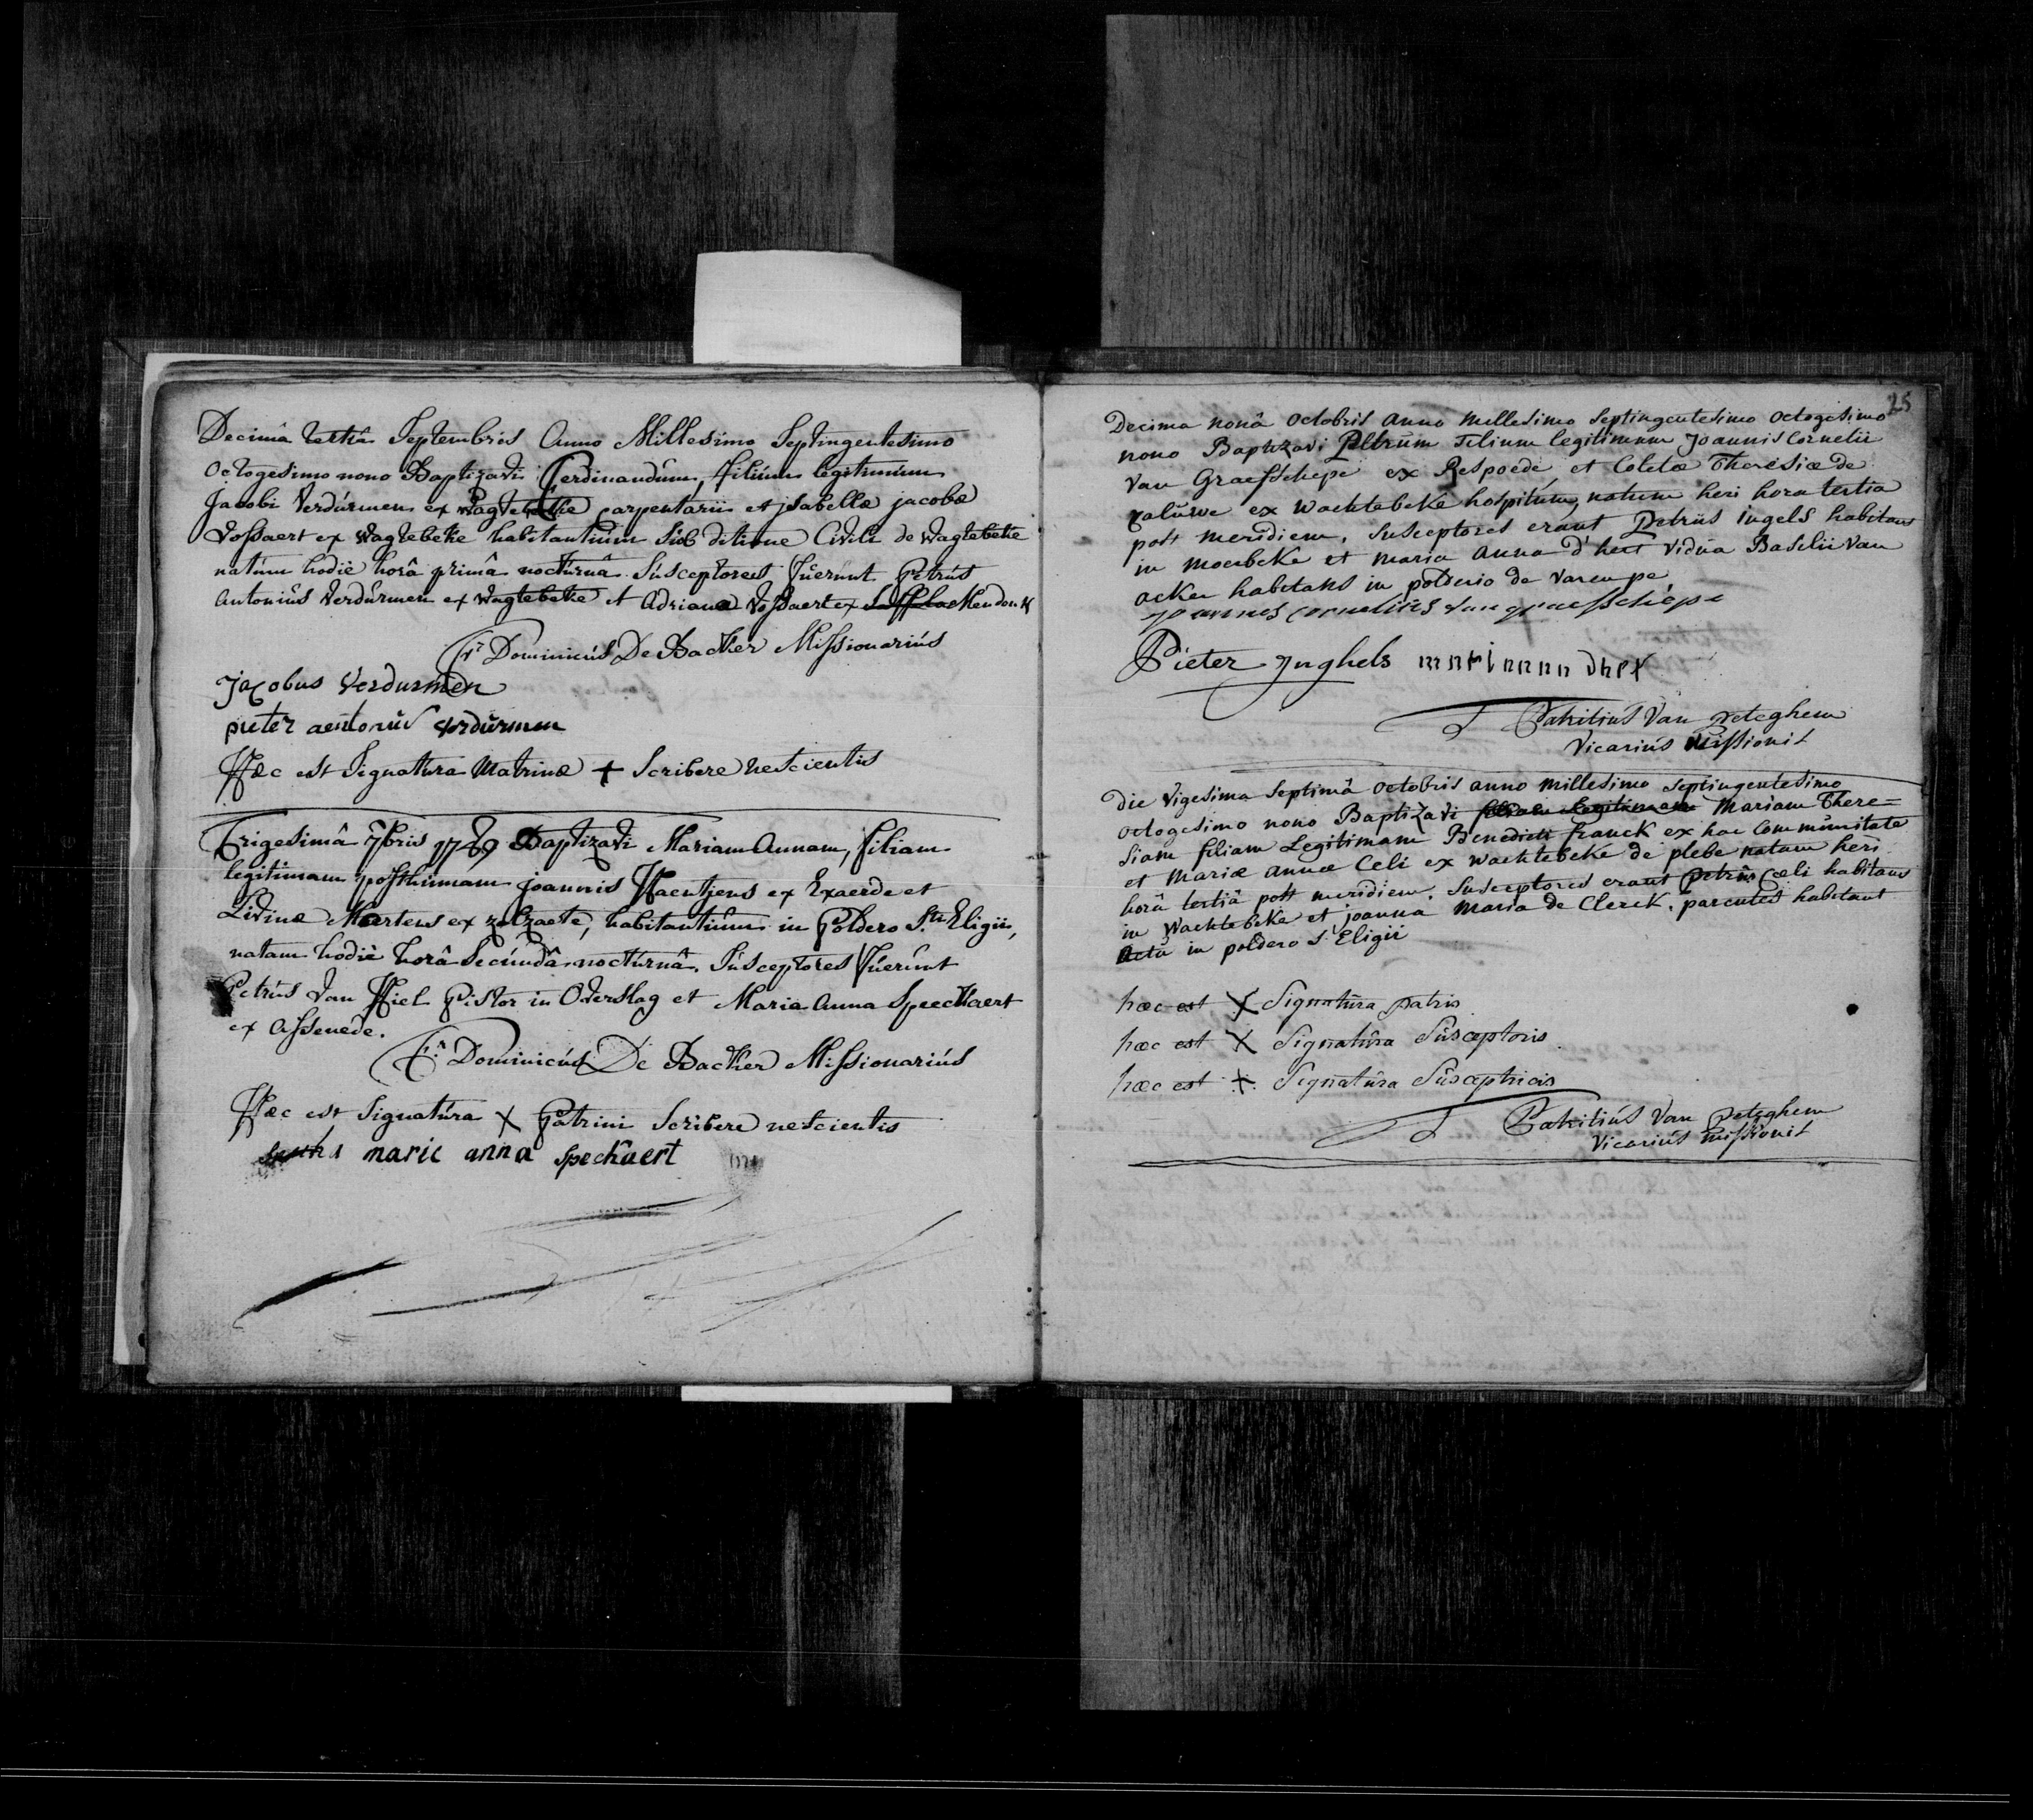 Decimâ tertiâ Septembris Anno Millesimo Septingentesimo
Octogesimo nono Baptizavi Ferdinandum, filium legitimum
Jacobi Verdurmen ex Wagtebeke carpentarii et jsabellæ jacobæ
Vossaert ex Wagtebeke habitantium sub ditione Civili de Wagtebeke
natum hodiè horâ primâ nocturnâ. Susceptores fuerunt Petrus
Antonius Verdurmen ex Wagtebeke et Adriana Vossaert ex
Fr. Dominicus De Backer Missionarius
Jacobus Verdurmen
pieter aentonus verdurmen
Hæc est Signatura Matrinæ + Scribere nescientis
Trigesimâ 7bris 1789 Baptizavi Mariam Annam, filiam
legitimam posthumam joannis Haentjens ex Exaerde et
Livinæ Martens ex zelzaete, habitantium in Poldero S.ti Eligii,
natam hodiè horâ secundâ nocturnâ. Susceptores fuerunt
Petrus Van Hiel Pistor in Overslag et Maria Anna Speeckaert
ex Assenede.
Fr. Dominicus De Backer Missionarius
Hæc est Signatura X Patrini Scribere nescientis
marie anna speckaert
25
Decima nonâ Octobris anno millesimo septingentesimo octogesimo
nono Baptizavi Petrum filium legitimum Joannis Cornelii
Van Graefschepe ex Respoede, et Coletæ Theresiæ de
zaluwe ex Wachtebeke hospitum, natum heri hora tertia
post meridiem. Susceptores erant Petrus ingels habitans
in Moerbeke et maria anna d'hert vidua Basilii van
acker habitans in polderio de varempe,
joannes cornelius van graefschepe
Pieter Jnghels marinnnn dhert
F Patritius Van peteghem
Vicarius Missionis
Die Vigesima septimâ octobris anno millesimo septingentesimo
octogesimo nono Baptizavi filiam Legitimam Mariam There=
siam filiam Legitimam Benedicti franck ex hac Communitate
et Mariæ annæ Celi ex wachtebeke de plebe natam heri
horâ tertiâ post meridiem. susceptores erant petrus Cæli habitans
in Wachtebeke et joanna Maria de Clerck. parentes habitant
actu in poldero s Eligii
hæc est X Signatura patris
hæc est X Signatura Susceptoris
hæc est +. Signatura Susceptricis
F Patritius Van peteghem
Vicarius Missionis